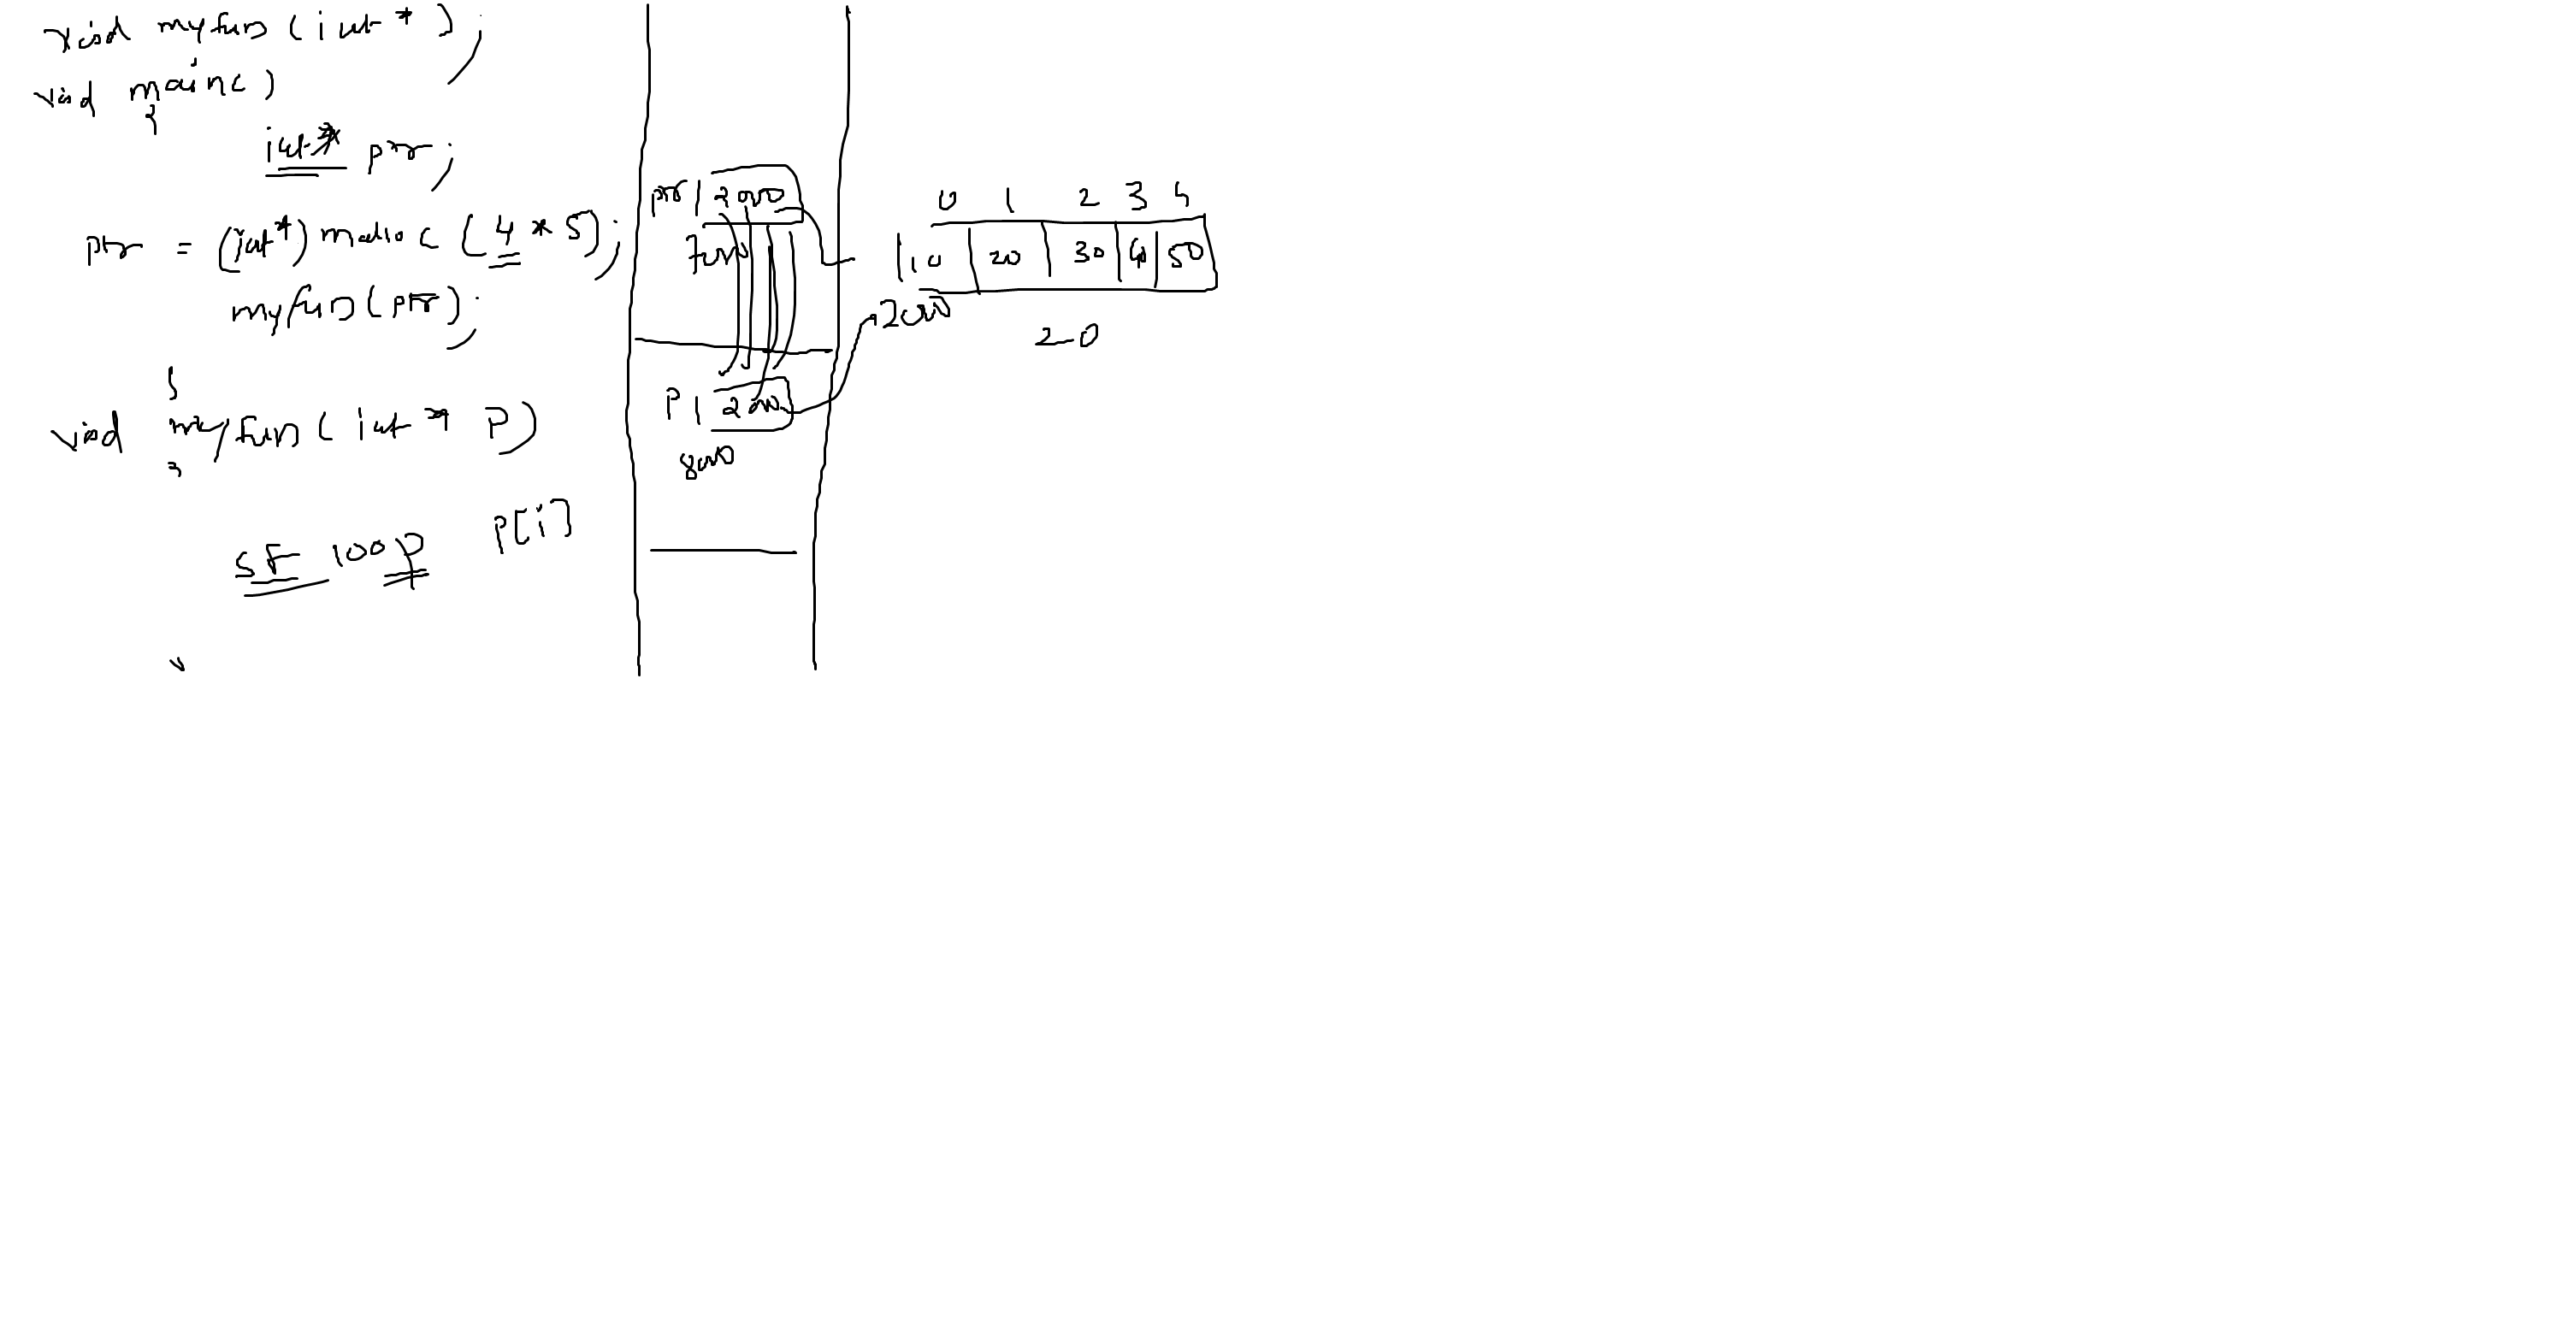 void myfun(int*);
void main()
{
int* ptr;
ptr = (int*)malloc(4*5);
myfun(ptr);
}
void myfun(int* p)
{
SF loop p[i]
ptr 2000
7000
p 2000
8000
0 1 2 3 4
10 20 30 40 50
2000
20